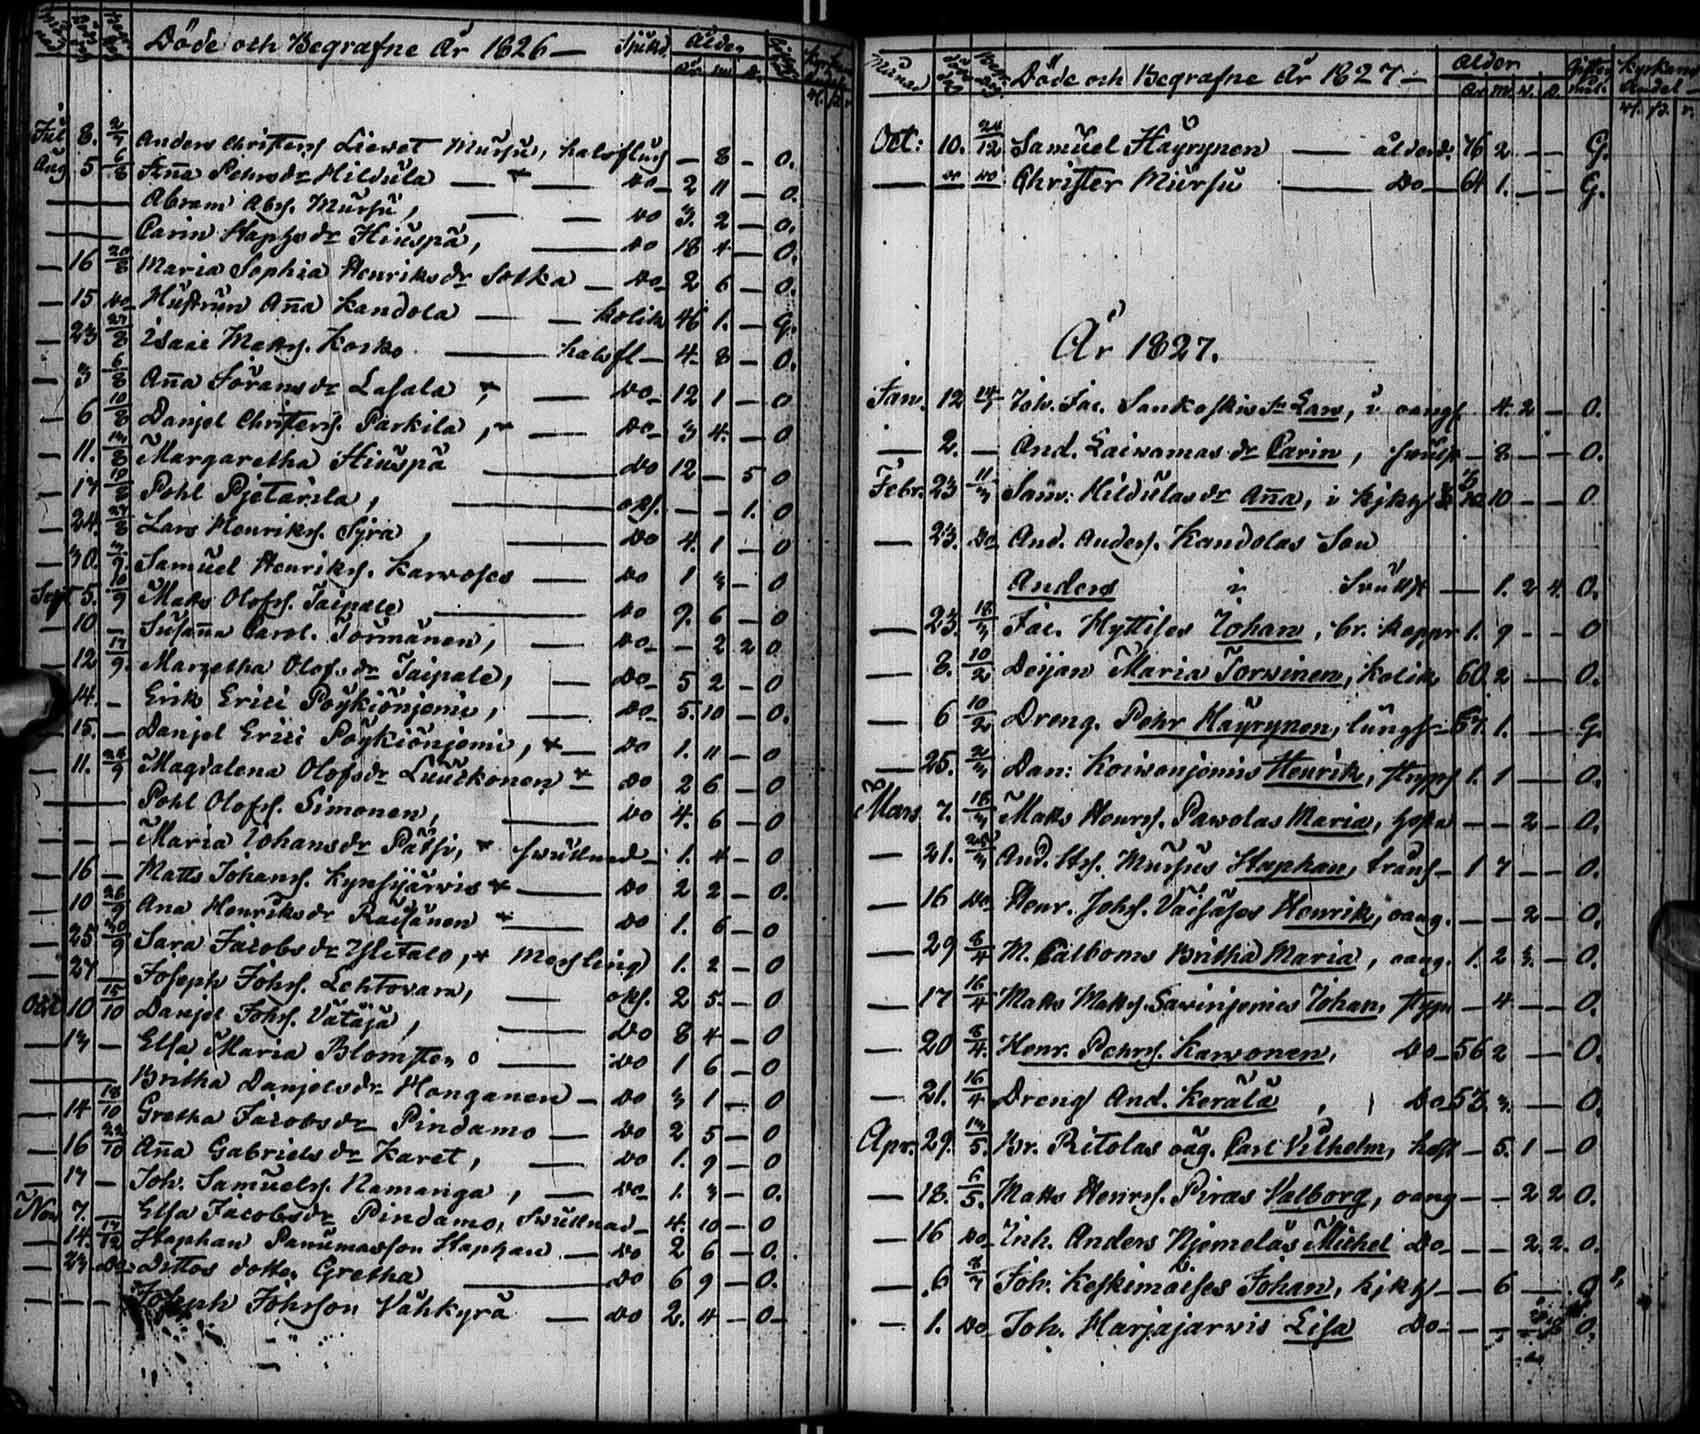 Döde och Begrafne År 1826 — Sjukd. Ålder
År m. d.
Jul 8. 2/7 Anders Christers Liewet Mursu, halsflus — 8 — 0.
Aug 5 6/8 Anna Pehrsdr Hildula — do 2 11 — 0.
Abram Abrs. Mursu, — do 3. 2 — 0.
Carin Staphsdr Hiuspä, — do 18 4 — 0.
— 16 20/8 Maria Sophia Henriksdr Sotka — do 2 6 — 0.
— 15 do Hustrun Anna Kandola — kolik 46 1. — G.
— 23 27/8 Isaac Matts. Korko — halsfl — 4. 8 — 0.
— 3 6/8 Anna Göransdr Lasala, — do 12 1 — 0
— 6 10/8 Danjel Christers. Parkila, — do 3 4. — 0
— 11. 14/8 Margaretha Hiuspä — do 12 — 5 0
— 17 19/8 Pohl Pjetarila, — oks. — — 1. 0
— 24. 27/8 Lars Henriks. Syra, — do 4. 1 — 0
— 30. 3/9. Samuel Henriks. Karvoses — do 1 3 — 0
Sept 5. 10/9 Matts Olofs. Taipale — do 9. 6 — 0
— 10 — Susanna Carol. Törmänen, — do — 2 2 0
— 12 17/9. Margetha Olofsdr Taipale, — do 5 2 — 0
— 14. — Erik Erici Pöykiönjemi, — do 5. 10 — 0.
— 15. — Danjel Erici Pöykiönjemi, — do 1. 11 — 0
— 11. 24/9 Magdalena Olofsdr Luukkonen — do 2 6 — 0
Pohl Olofs. Simonen, — do 4. 6 — 0
— — — Maria Johansdr Pätsi, swullnad — 1. 4 — 0
— 16 — Matts Johans. Kynsijärwis — do 2 2 — 0.
— 10 26/9 Ana Henriksdr Raisänen — do 1. 6 — 0
— 25 30/9 Sara Jacobsdr Ylitalo, Messling 1. 2 — 0
— 27 — Joseph Johs. Lehtovara, — oks. 2 5. — 0
Oct 10 15/10 Danjel Johs. Vätäjä, — do 8 4 — 0
— 13 — Elsa Maria Blomster — do 1 6 — 0
Britha Danjelsdr Honganen — do 3 1 — 0
— 14 18/10 Gretha Jacobsdr Pindamo — do 2 5 — 0
— 16 22/10 Anna Gabrielsdr Karet, — do 1. 9 — 0
— 17 — Joh. Samuels. Namanga, — do 1. 3 — 0.
Nov 7. — Elsa Jacobsdr Pindamo, Swullnad — 4. 10 — 0
— 14. 17/12 Staphan Panumasson Staphan — do 2 6 — 0.
— 23 do Dittos dotter Gretha — do 6 9 — 0.
— — — Joseph Johsson Vähkyrä — do 2. 4 — 0 —
Månad Döde och Begrafne År 1827 — Ålder Kyrkans Andel
År m. v. d.
Oct: 10. 24/12 Samuel Häyrynen — ålderd. 76 2 — — G.
— do do Christer Mursu — do — 64 1. — — G.
År 1827.
Jan. 12 14/1 Joh. Jac. Sankoskis Sn Lars, i oangf 4. 2 — 0.
— 2. — And. Laiwamas dr Carin, swulst — 8 — — 0.
Febr. 23 11/3 Sam: Hildulas dr Anna, i kjkhf 10 — — 0
— 23. Do And. Anders. Kandolas Son
Anders i Swullst — 1. 2 4. 0.
— 23. 18/3 Jac. Hyttises Johan, br. koppr 1. 9 — — 0
— 8. 10/2 Deijan Maria Torwinen, kolik 60. 2 — — 0.
— 6 10/2 Dreng. Pehr Häyrynen, lungs — 57. 1. — — G.
— 25. 2/3 Dan: Koiwonjemis Henrik, stypf 1. 1 — — 0.
Mars 7. 18/3 Matts Henrs. Pawolas Maria, hosta — — 2 — 0.
— 21. 25/3 And. Sts. Mursus Staphan, trans — 1 7 — — 0.
— 16 do Henr. Johs. Väisäses Henrik, oang. — — 2 — 0.
— 29 8/4 M. Calboms Britha Maria, oang. 1. 2 3. — 0.
— 17 16/4 Matts Matts. Sawinjemis Johan, styp — 4 — — 0.
— 20 8/4. Henr. Pehrs. Karwonen, Do — 56 2 — — 0.
— 21. 16/4 Dreng And. Kerälä, Do 57. 3. — — 0.
Apr. 29. 13/5. Br. Ritolas oäg. Carl Vilhelm, host — 5. 1 — 0
— 18. 6/5. Matts Henrs. Piras Valborg, oang — — 2 2 0.
— 16 do Inh. Anders Njemelas Michel Do — — 2. 2. 0.
— 6 8/7 Joh. Keskimaises Johan, kjkhf — — 6 — — 0
— 1. do Joh. Harjajarwis Lisa Do — — 0.